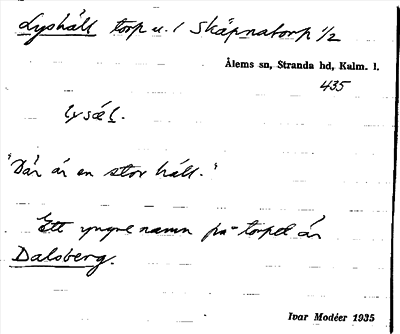 Lyshäll torp u. 1 Skäpnatorp 1/2
Ålems sn, Stranda hd, Kalm. l.
435
lysæl.
"Där är en stor häll."
Ett yngre namn på torpet är
Dalsberg.
Ivar Modéer 1935